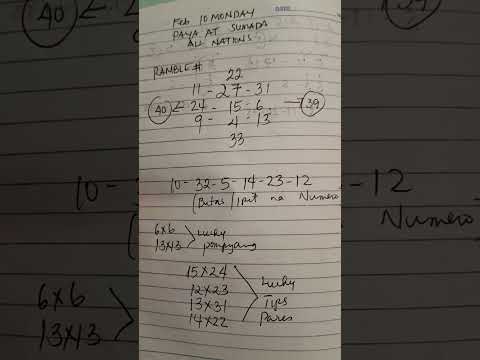 DATE:
Feb 10 MONDAY
PAYA AT SUMADA
ALL NATIONS
RAMBLE #
22
11 - 27 - 31
40 ← 24 - 15 - 6 → 39
9 - 4 - 13
33
10 - 32 - 5 - 14 - 23 - 12
(Butas / Ipit na Numero
6x6
13x13 > Lucky pompyang
15x24
12x23
13x31
14x22 > Lucky Tips Pares
40
39
10 -
- 12
Numero
6x6
13x13